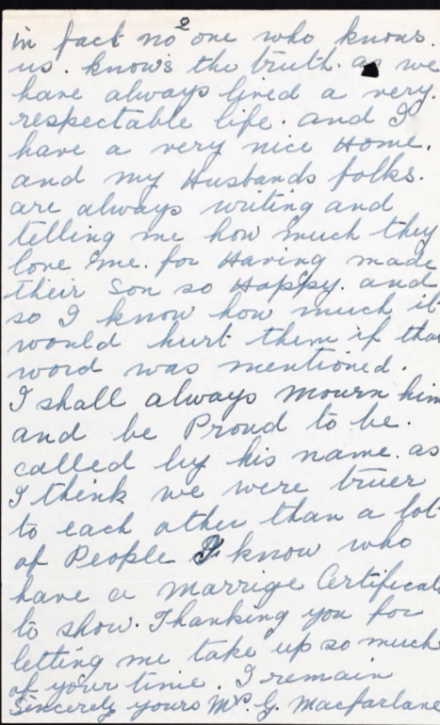 2
in fact no one who knows.
us. knows the truth. as we
have always lived a very.
respectable life. and I
have a very nice Home.
and my Husbands folks.
are always writing and
telling me how much they
love me. for Having made
their Son so Happy. and
so I know how much it
would hurt them if that
word was mentioned.
I shall always mourn him
and be Proud to be.
called by his name. as
I think we were truer
to each other than a lot
of People I know who
have a marrige Certificat
to show. Thanking you for
letting me take up so much
of your time. I remain
Sincerely yours Mrs. G. Macfarlane